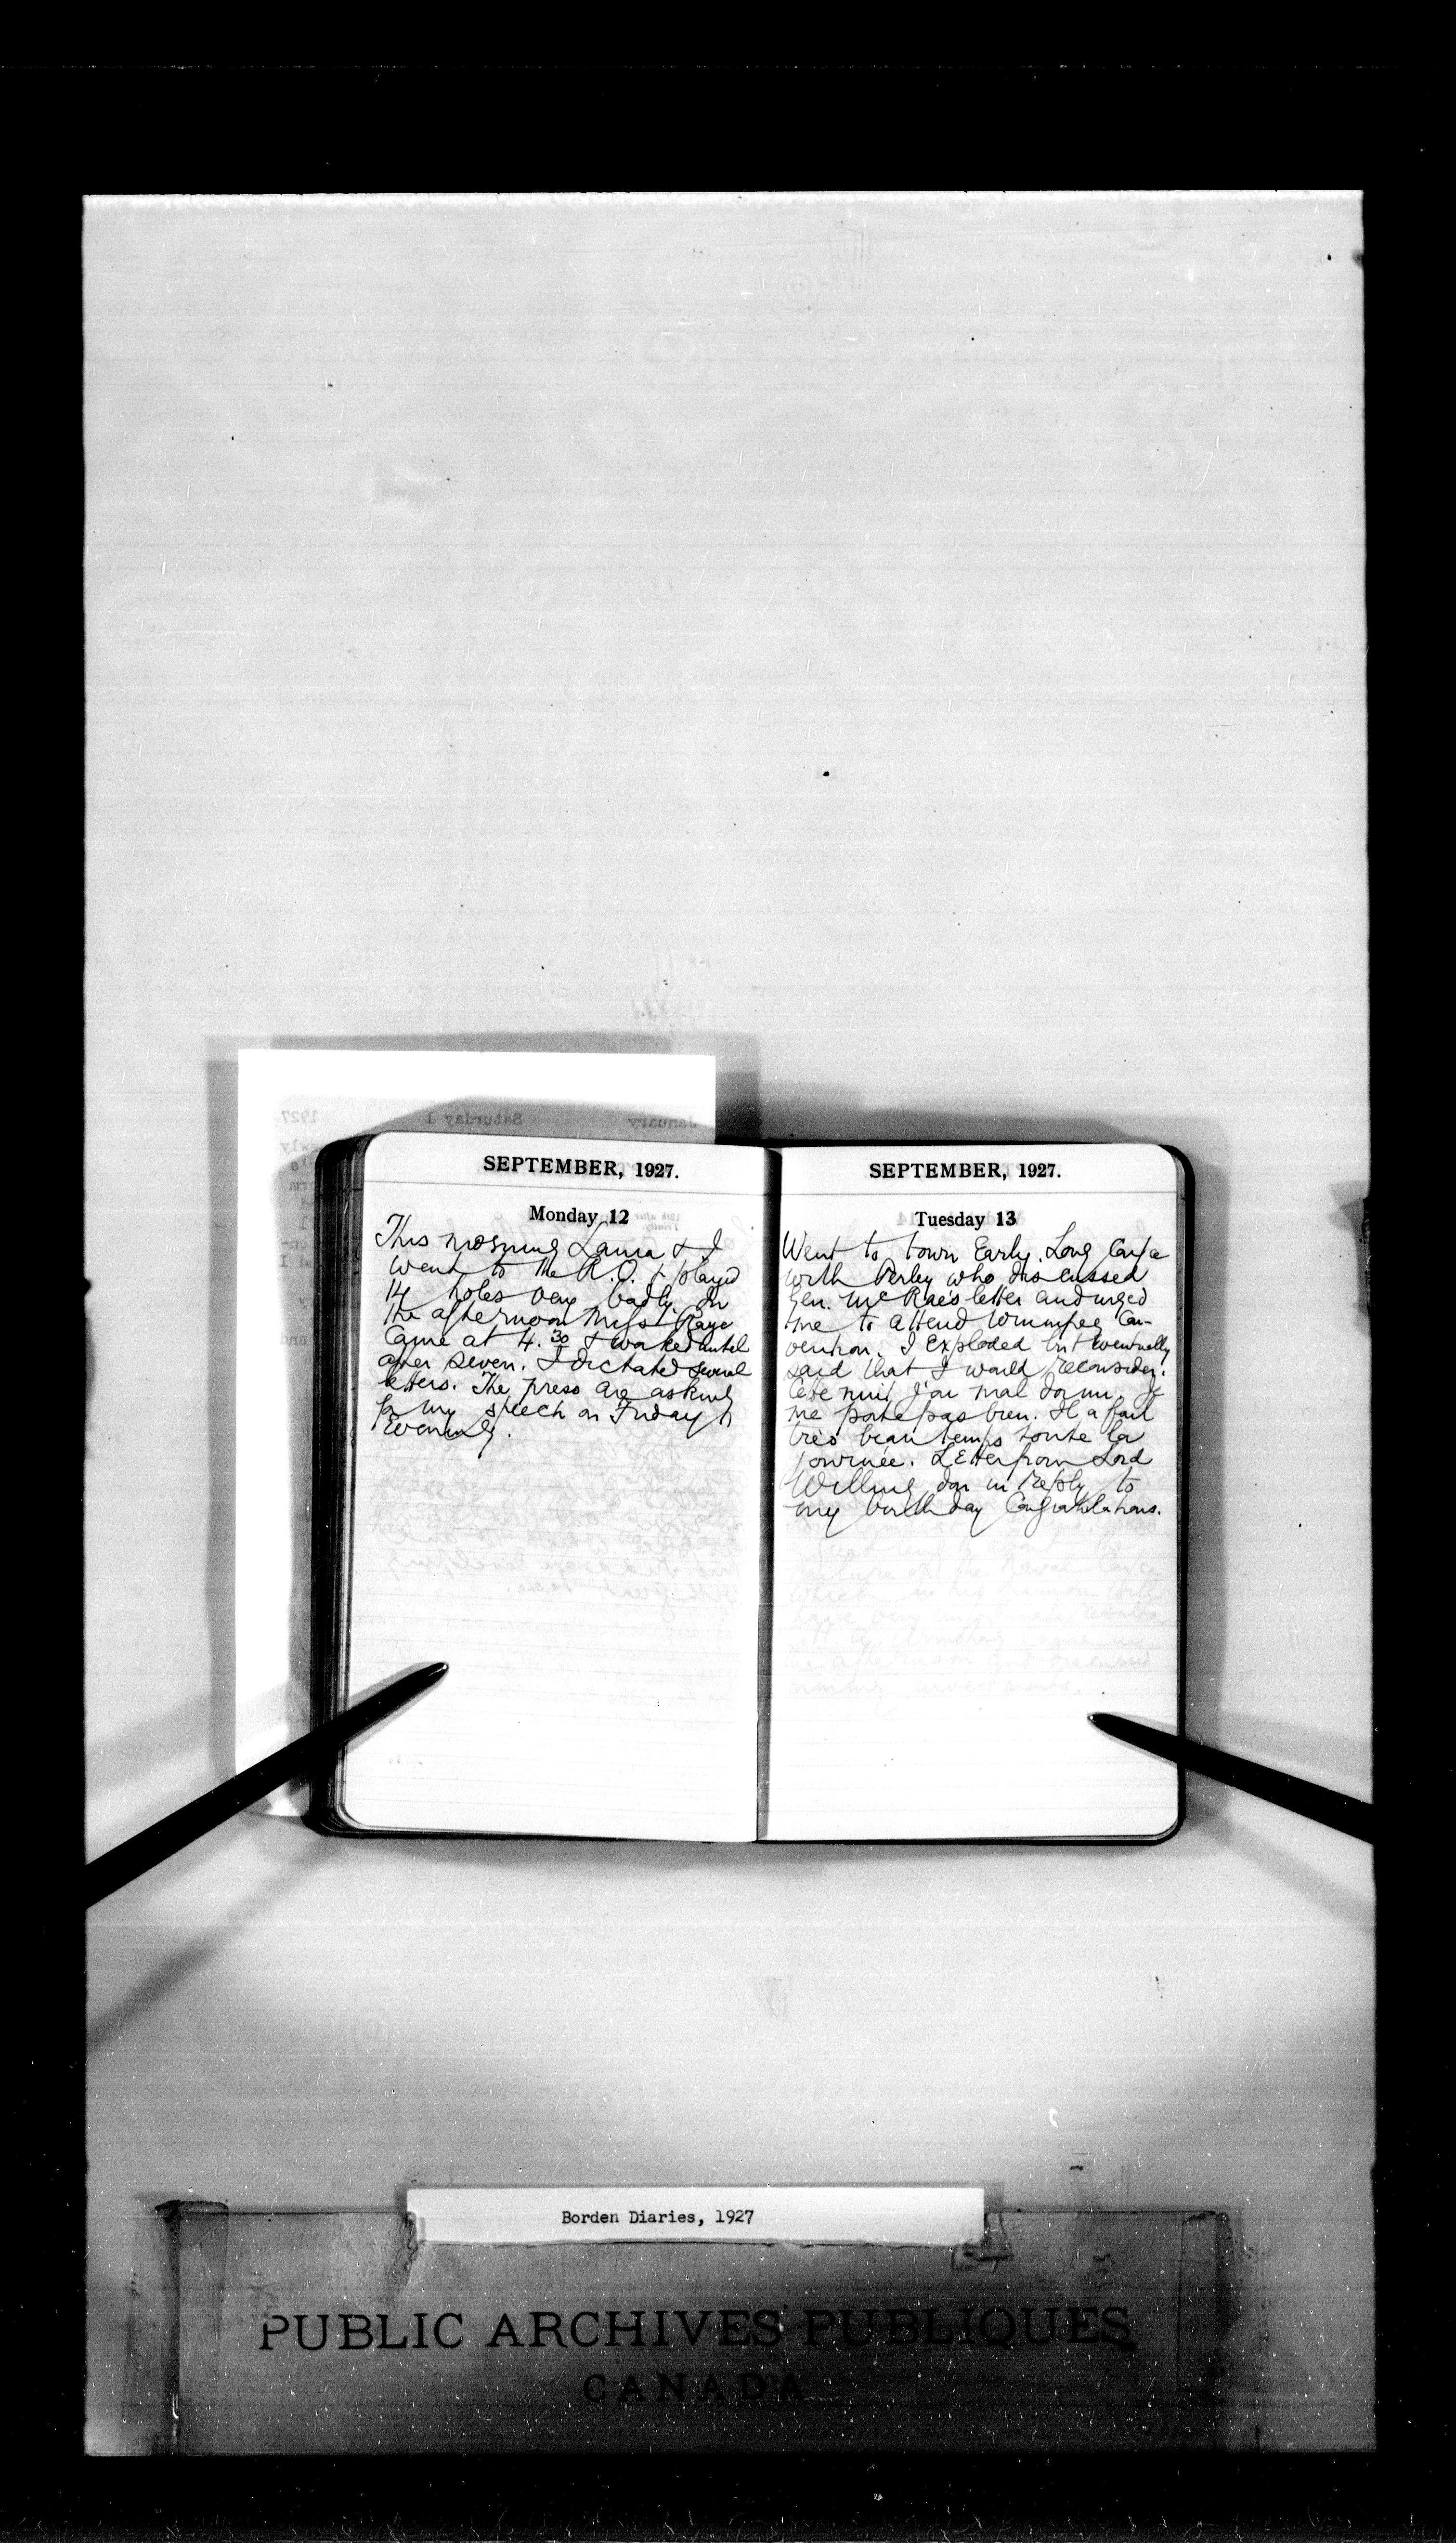 SEPTEMBER, 1927.
Monday 12
This morning Laura & I
went to the R.O. & played
14 holes very badly. In
the afternoon Miss
came at 4.30 & worked until
after seven. I dictated several
letters. The press are asking
for my speech on Friday
Evening.
SEPTEMBER, 1927.
Tuesday 13
Went to town Early. Long Confce
with Perley who discussed
Gen. McRae's letter and urged
me to attend Winnipeg Con-
vention. I Exploded but eventually
said that I would reconsider.
Cette nuit j'ai mal dormi. Je
me porte pas bien. Il a fait
très beau temps toute la
journée. Letter from Lord
Willingdon in reply to
my birthday Congratulations.
Borden Diaries, 1927
PUBLIC ARCHIVES PUBLIQUES
CANADA